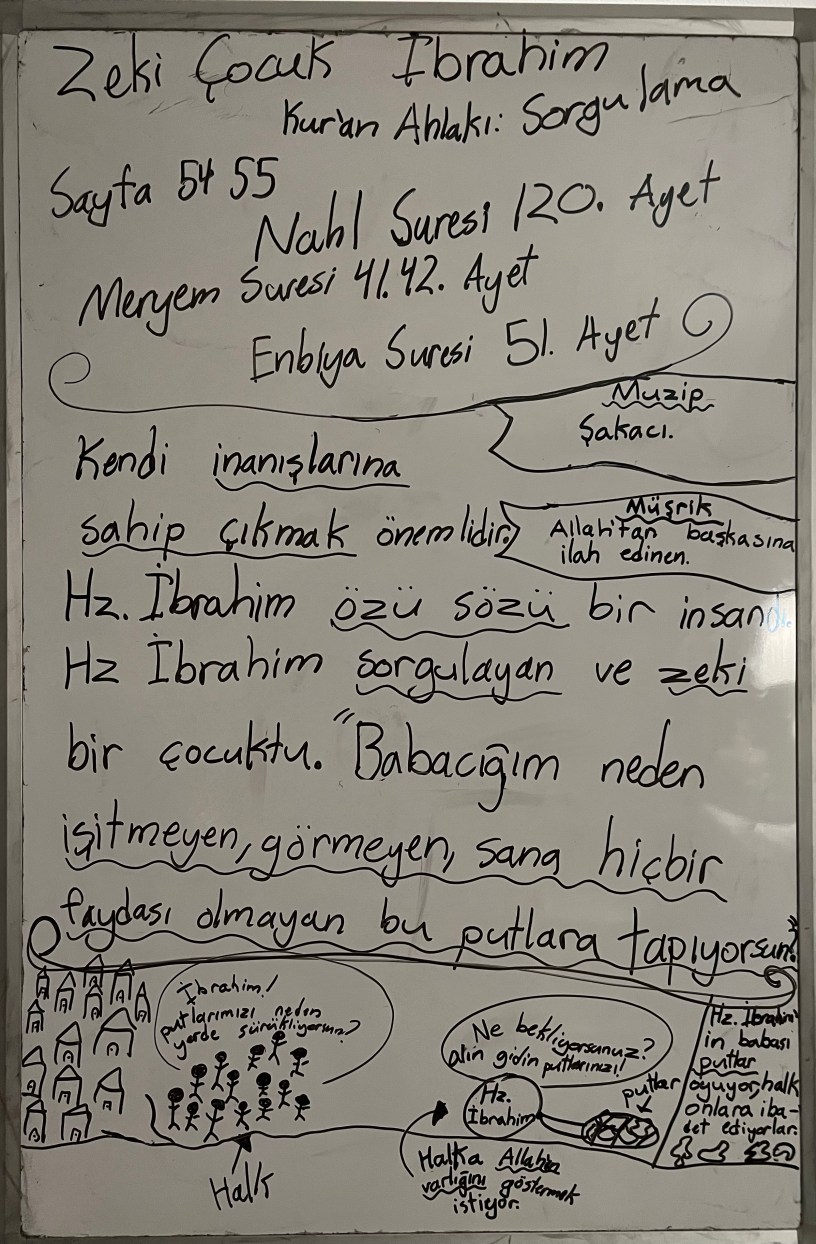 Zeki Çocuk İbrahim
Kur'an Ahlakı: Sorgulama
Sayfa 54 55
Nahl Suresi 120. Ayet
Meryem Suresi 41.42. Ayet
Enbiya Suresi 51. Ayet
Muzip
Şakacı.
Kendi inanışlarına
sahip çıkmak önemlidir.
Müşrik
Allah'tan başkasına
ilah edinen.
Hz. İbrahim özü sözü bir insandı.
Hz İbrahim sorgulayan ve zeki
bir çocuktu. "Babacığım neden
işitmeyen, görmeyen, sana hiçbir
faydası olmayan bu putlara tapıyorsun?"
İbrahim!
putlarımızı neden
yerde sürüklüyorsun?
Ne bekliyorsunuz?
alın gidin putlarınızı!
Hz.
İbrahim
putlar
Hz. İbrahim'
in babası
putlar
oyuyor, halk
onlara iba-
det ediyorlar.
Halk
Halka Allah'ın
varlığını göstermek
istiyor.